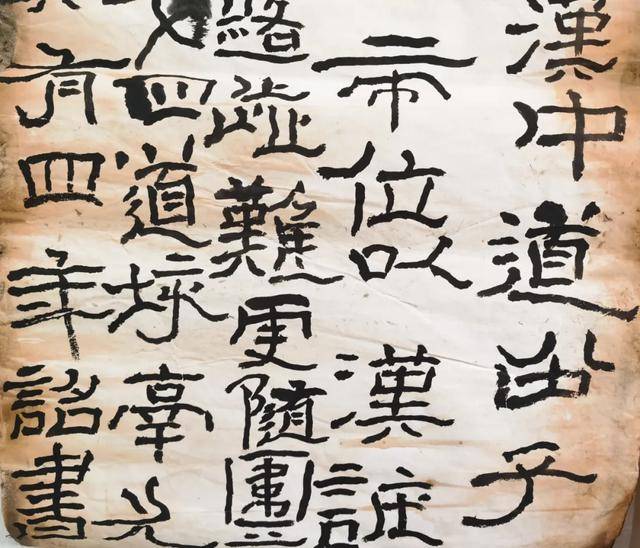 漢中道由子
帝位以漢詆
路歰難更隨圍
四道垓鬲尤
有四年詔書